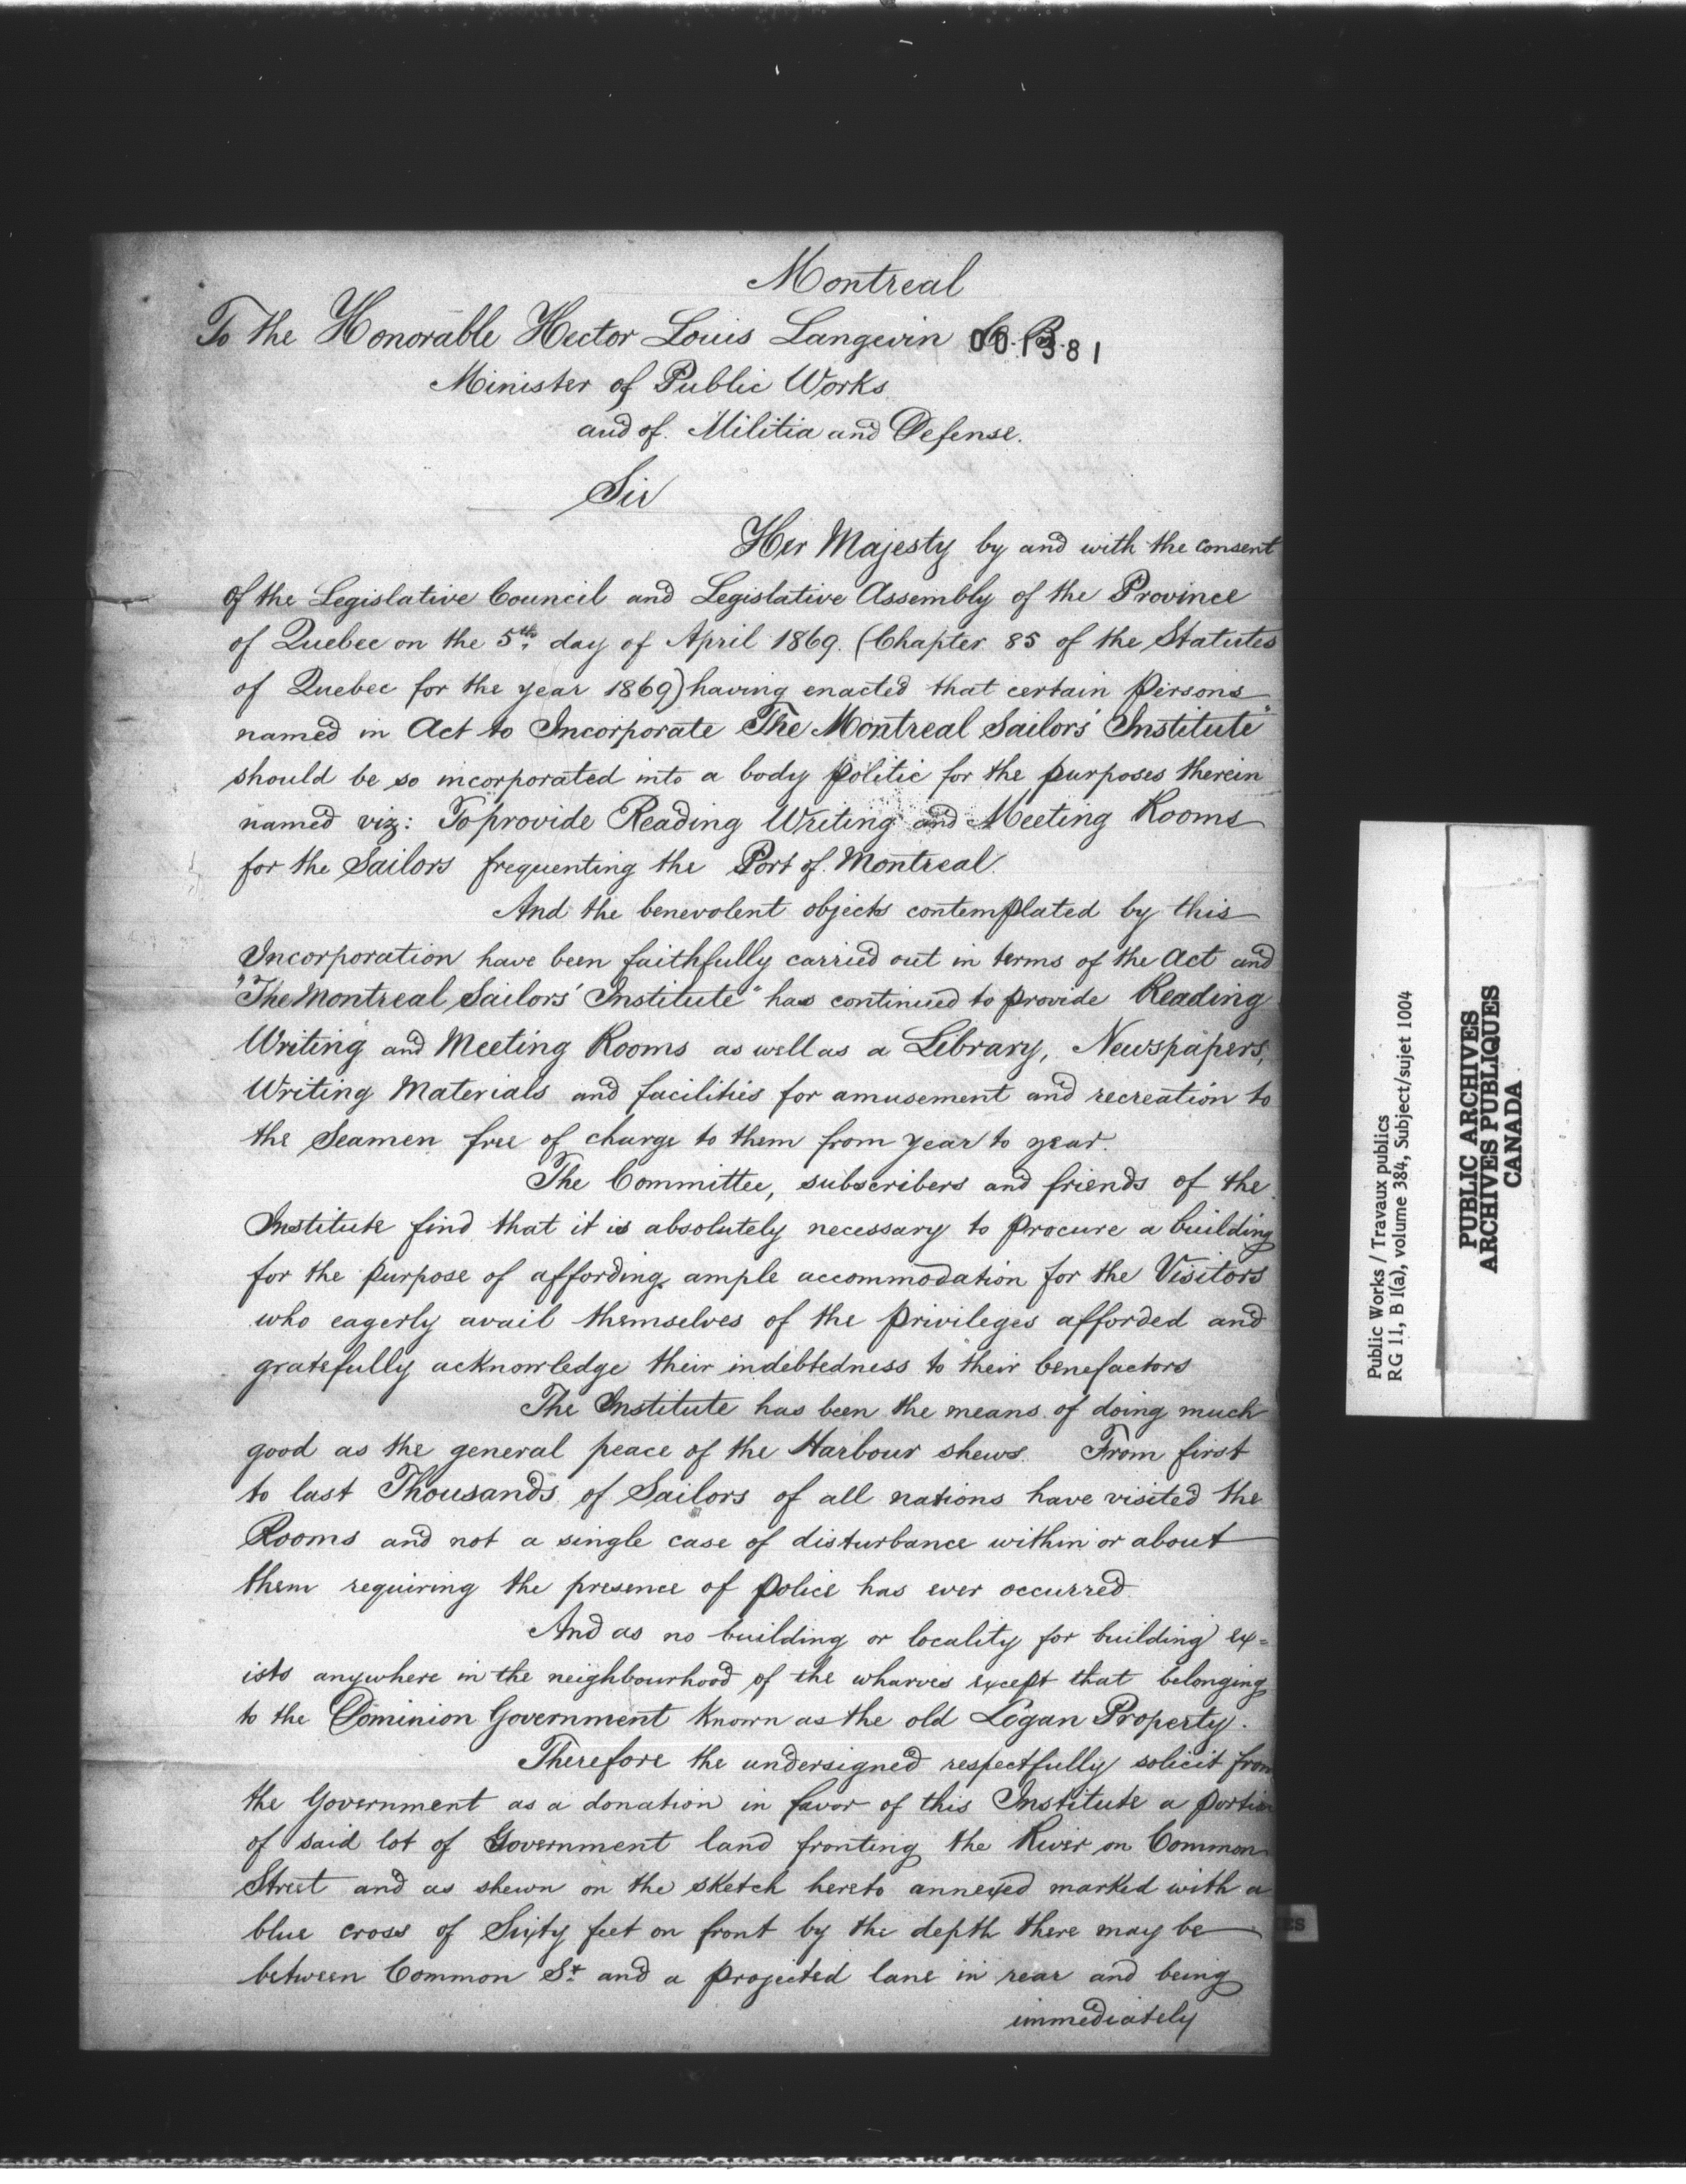 Montreal
To the Honorable Hector Louis Langevin C. B.
001381
Minister of Public Works
and of Militia and Defense.
Sir
Her Majesty by and with the consent
of the Legislative Council and Legislative Assembly of the Province
of Quebec on the 5th day of April 1869. (Chapter 85 of the Statutes
of Quebec for the year 1869) having enacted that certain persons
named in Act to Incorporate "The Montreal Sailors' Institute"
should be so incorporated into a body politic for the purposes therein
named viz: To provide Reading Writing and Meeting Rooms
for the Sailors frequenting the Port of Montreal.
And the benevolent objects contemplated by this
Incorporation have been faithfully carried out in terms of the Act and
"The Montreal Sailors' Institute" has continued to provide Reading
Writing and Meeting Rooms as well as a Library, Newspapers,
Writing Materials and facilities for amusement and recreation to
the Seamen free of charge to them from year to year.
The Committee, subscribers and friends of the
Institute find that it is absolutely necessary to procure a building
for the purpose of affording ample accommodation for the Visitors
who eagerly avail themselves of the privileges afforded and
gratefully acknowledge their indebtedness to their benefactors
The Institute has been the means of doing much
good as the general peace of the Harbour shews. From first
to last Thousands of Sailors of all nations have visited the
Rooms and not a single case of disturbance within or about
them requiring the presence of police has ever occurred.
And as no building or locality for building ex=
ists anywhere in the neighbourhood of the wharves except that belonging
to the Dominion Government known as the old Logan Property.
Therefore the undersigned respectfully solicit from
the Government as a donation in favor of this Institute a portion
of said lot of Government land fronting the River on Common
Street and as shewn on the sketch hereto annexed marked with a
blue cross of Sixty feet on front by the depth there may be
between Common St. and a projected lane in rear and being
immediately
Public Works / Travaux publics
RG 11, B 1(a), volume 384, Subject/sujet 1004
PUBLIC ARCHIVES
ARCHIVES PUBLIQUES
CANADA